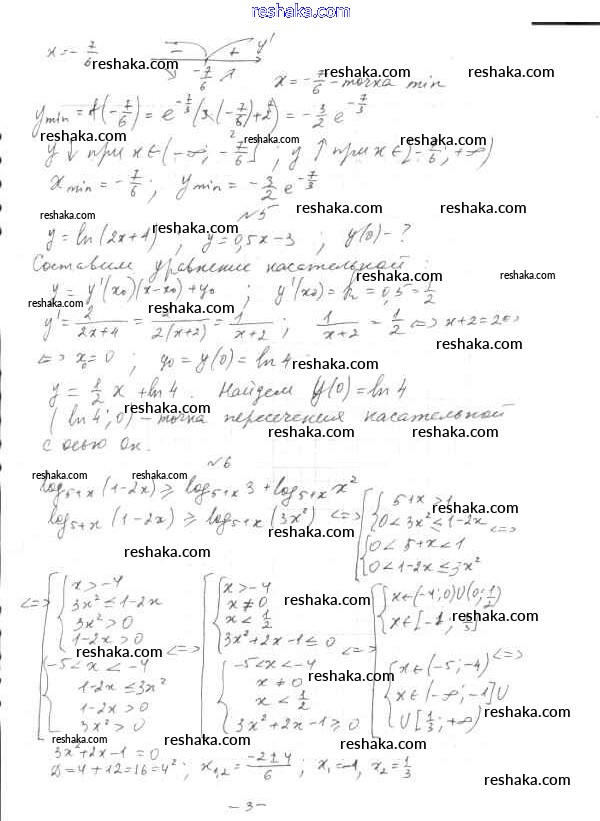 reshaka.com
x = -7/6   -   +   y'
-7/6   x = -7/6 - точка min
y min = f(-7/6) = e^(-7/3) (3·(-7/6)+2) = -3/2 e^(-7/3)
y ↓ при x∈(-∞; -7/6], y ↑ при x∈[-7/6; +∞)
x min = -7/6; y min = -3/2 e^(-7/3)
№5
y = ln(2x+4), y = 0,5x-3; y(0) - ?
Составим уравнение касательной:
y = y'(x₀)(x-x₀)+y₀; y'(x₀) = k = 0,5 = 1/2
y' = 2/(2x+4) = 2/(2(x+2)) = 1/(x+2); 1/(x+2) = 1/2 <=> x+2=2 <=>
<=> x₀ = 0; y₀ = y(0) = ln 4
y = 1/2 x + ln 4. Найдем y(0) = ln 4
(ln 4; 0) - точка пересечения касательной
с осью Ox.
№6
log₅₊ₓ(1-2x) ≥ log₅₊ₓ 3 + log₅₊ₓ x²
log₅₊ₓ(1-2x) ≥ log₅₊ₓ(3x²) <=> [ { 5+x>1
0<3x²≤1-2x <=>
{ 0<5+x<1
0<1-2x≤3x²
<=> [ { x>-4   [ { x>-4   [ { x∈(-4;0)∪(0;1/2)
3x²≤1-2x   x≠0   x∈[-1; 1/3]
3x²>0   x<1/2
1-2x>0 <=>   3x²+2x-1≤0 <=>
{ -5<x<-4   { -5<x<-4   { x∈(-5;-4) <=>
1-2x≤3x²   x≠0   x∈(-∞;-1]∪
1-2x>0   x<1/2   ∪[1/3; +∞)
3x²>0   3x²+2x-1≥0
3x²+2x-1=0
D=4+12=16=4²; x₁,₂ = (-2±4)/6; x₁=-1, x₂=1/3
- 3 -